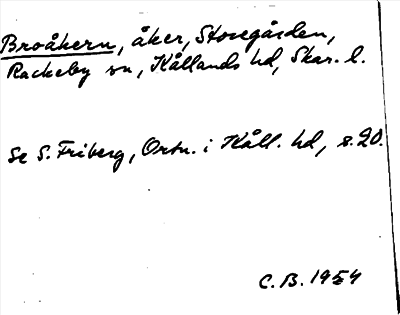 Broåkern, åker, Storegården,
Rackeby sn, Kållands hd, Skar. l.
Se S. Friberg, Ortn. i Kåll. hd, s. 20.
C. B. 1954